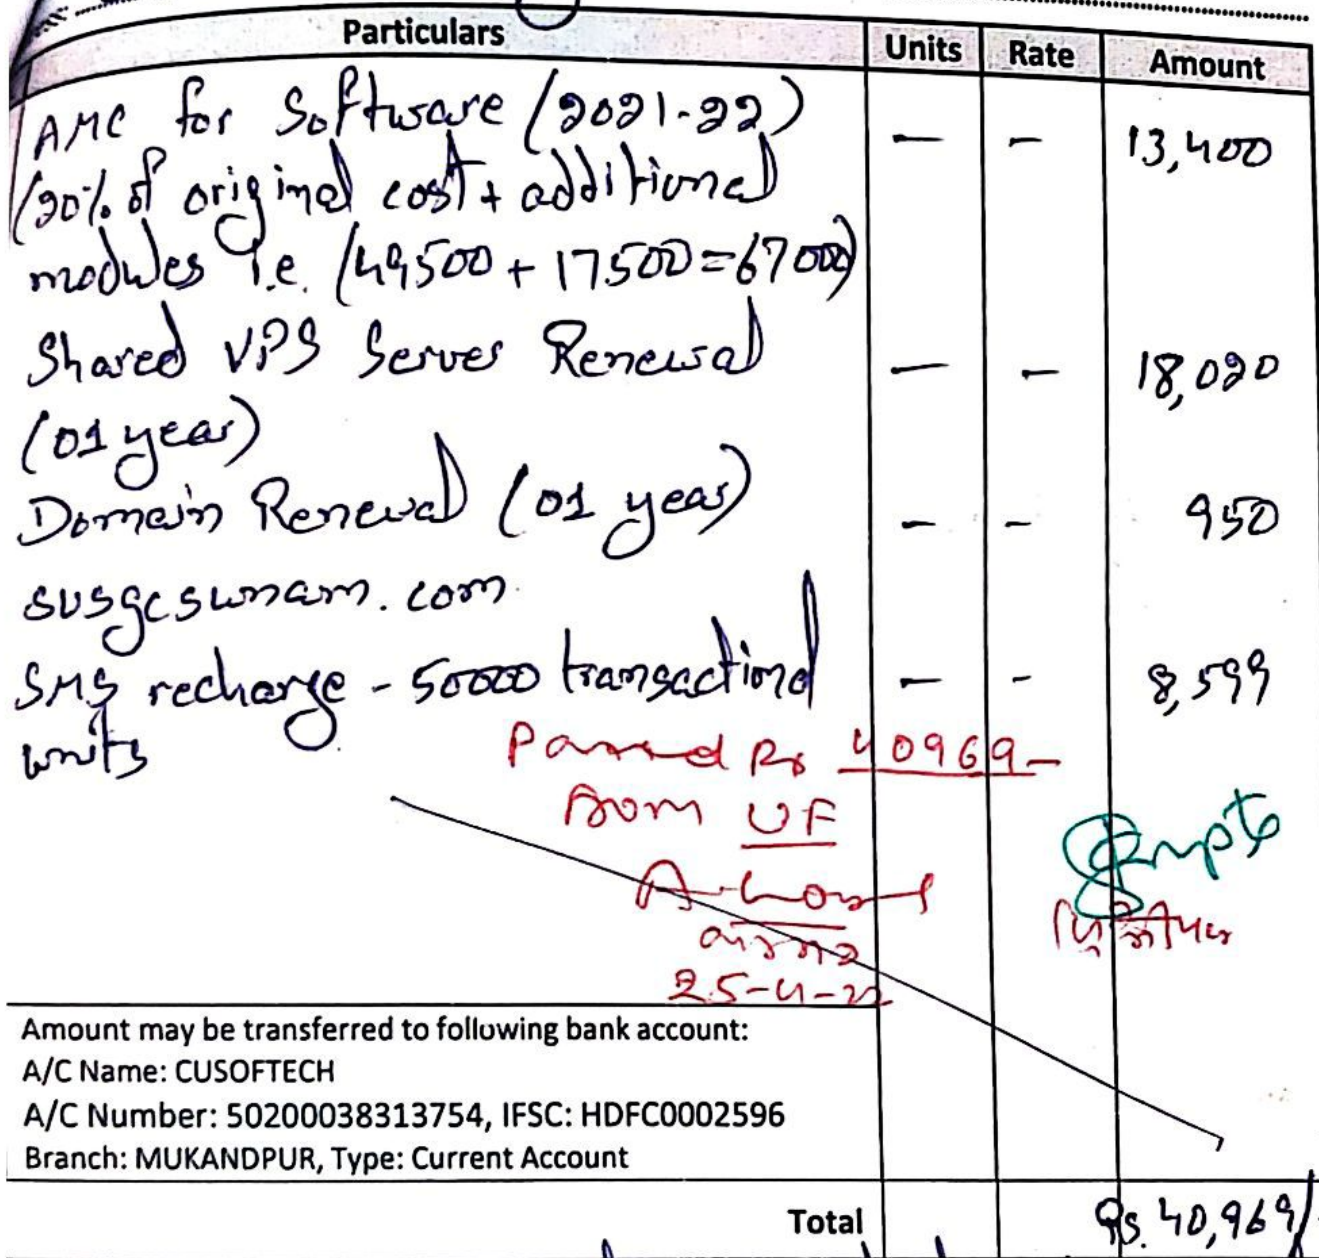 Particulars Units Rate Amount
AMC for Software (2021-22) — — 13,400
(20% of original cost + additional
modules i.e. (49500 + 17500 = 67000)
Shared VPS Server Renewal — — 18,020
(01 year)
Domain Renewal (01 year) — — 950
susgcsunam.com
SMS recharge - 50000 transactional — - 8,599
units
Passed Rs 40969-
from UF
25-4-22
Amount may be transferred to following bank account:
A/C Name: CUSOFTECH
A/C Number: 50200038313754, IFSC: HDFC0002596
Branch: MUKANDPUR, Type: Current Account
Total Rs. 40,969/-